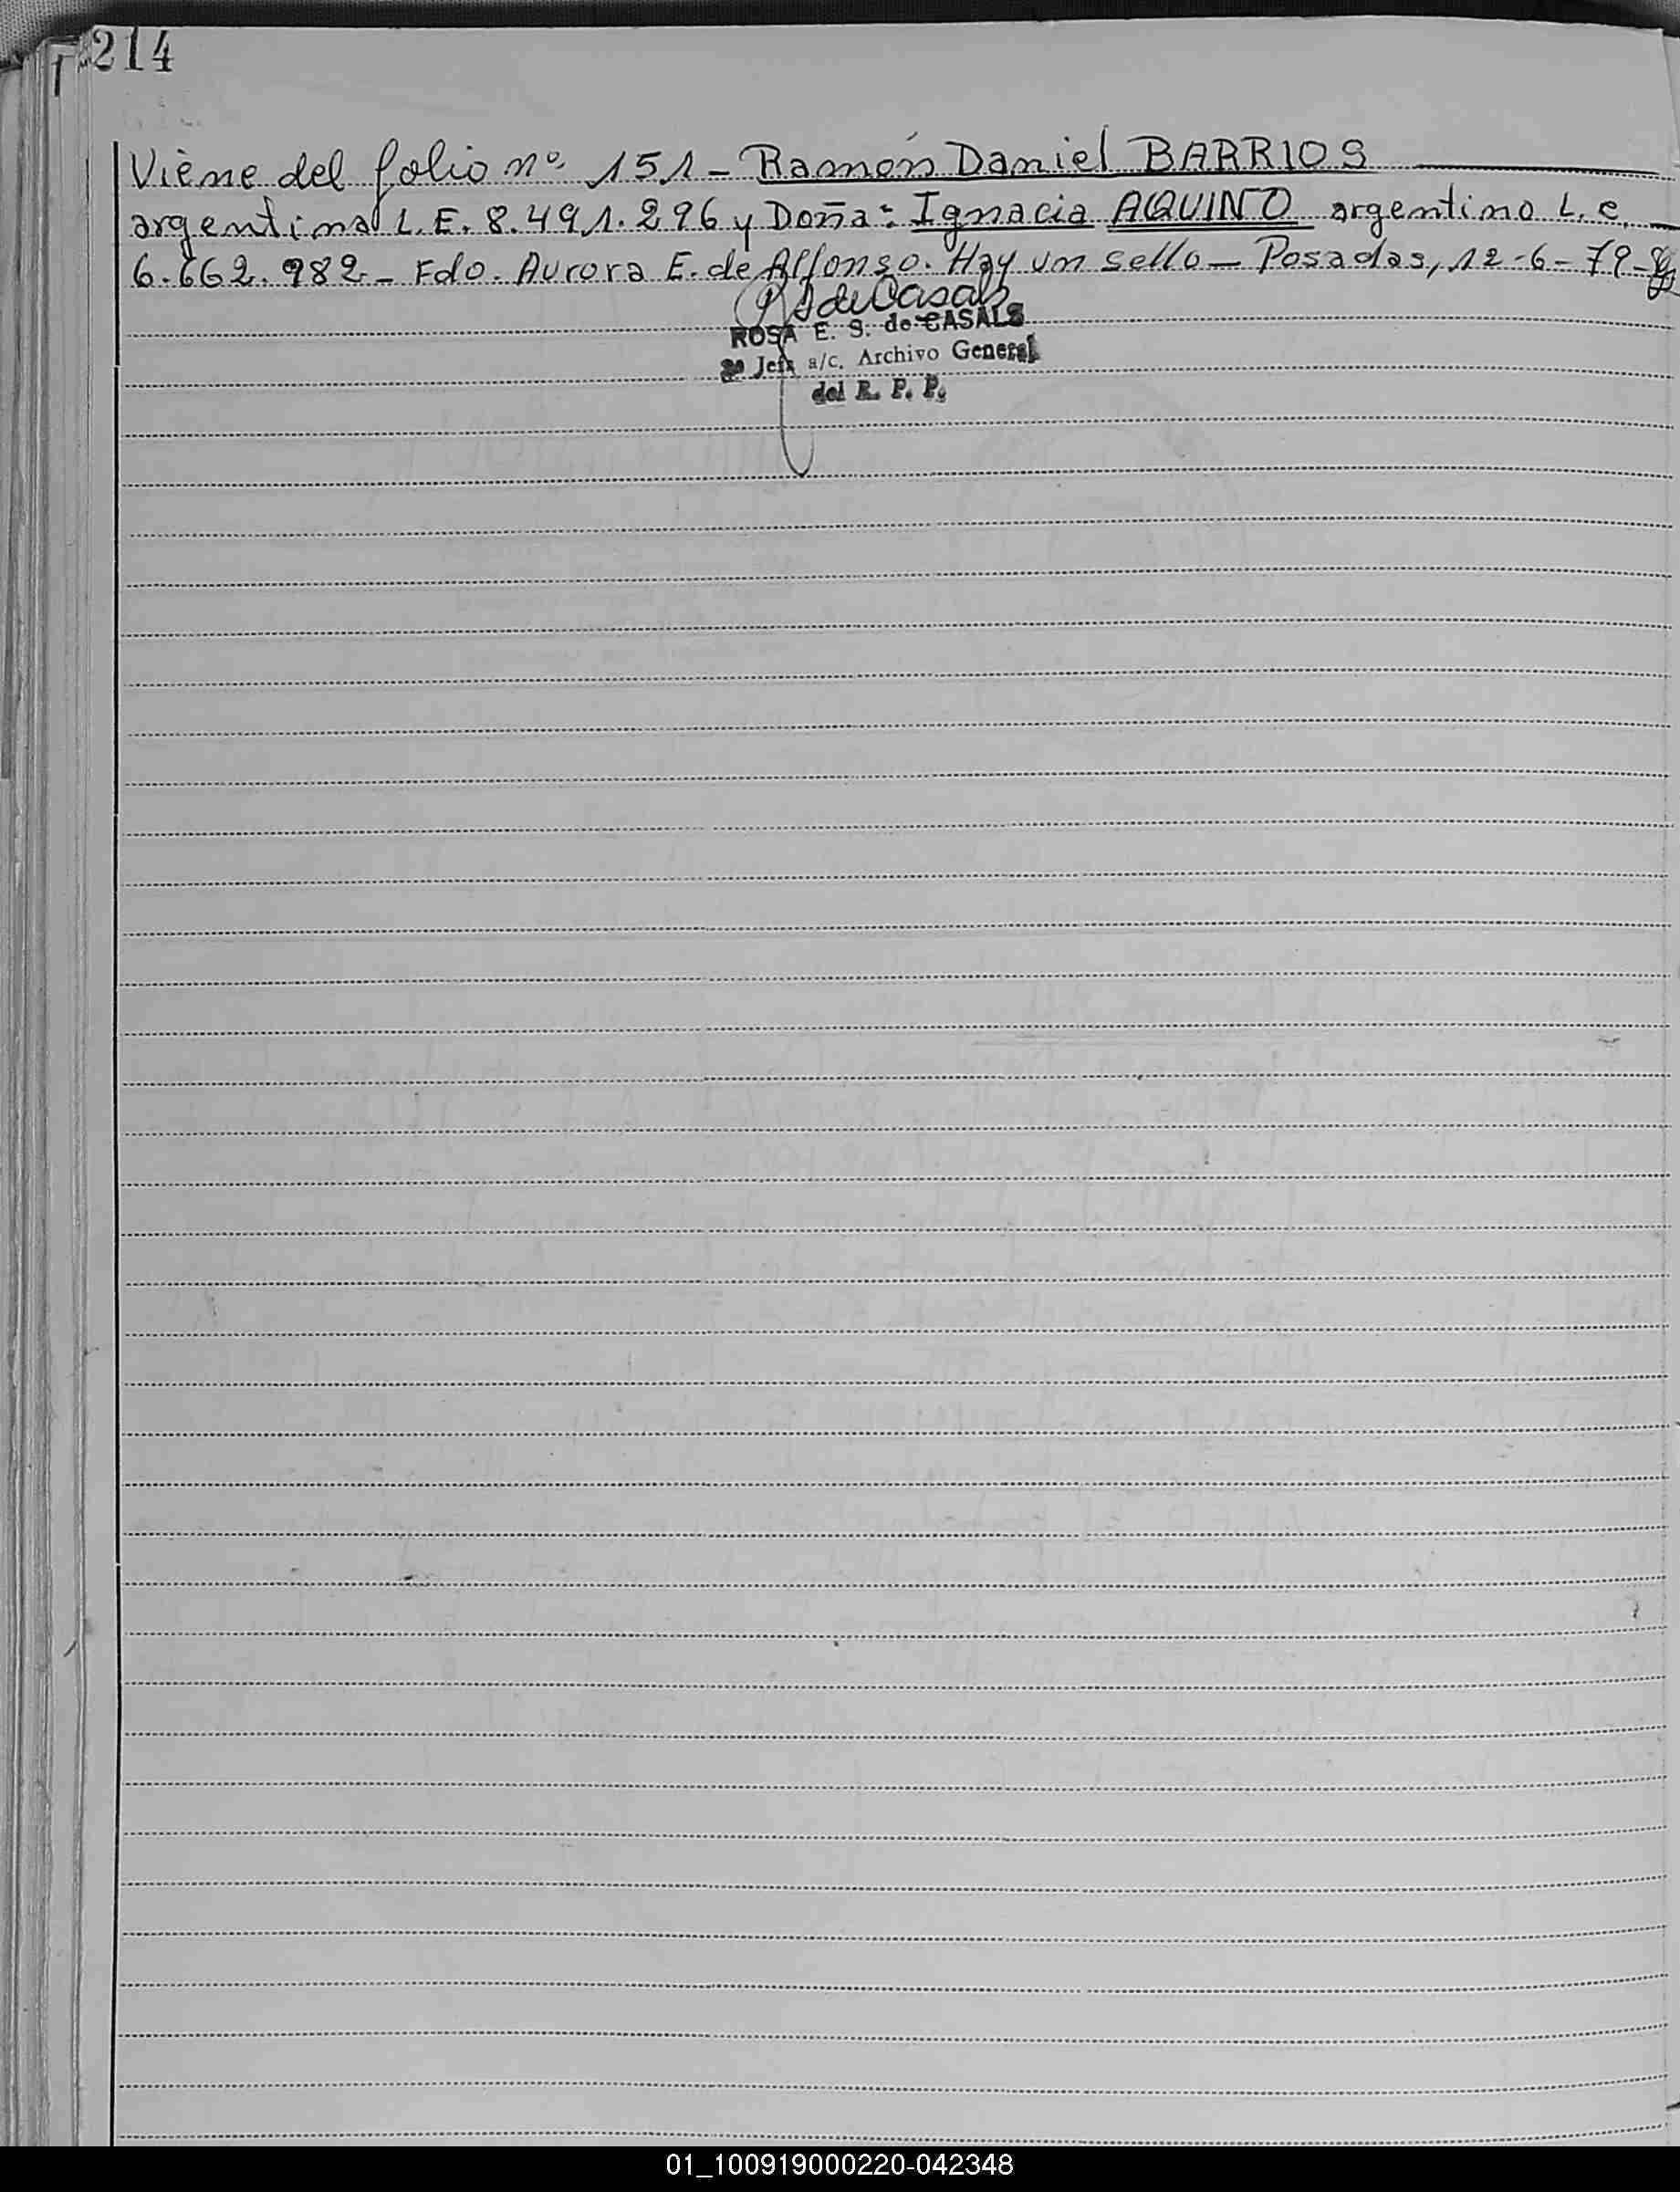 214
Viene del folio nº 151 - Ramón Daniel BARRIOS
argentina L.E. 8.491.296 y Doña: Ignacia AQUINO argentino L.c.
6.662.982 - Fdo. Aurora E. de Alfonso. Hay un sello - Posadas, 12-6-79-
RS de Casals
ROSA E. S. de CASALS
2º Jefa a/c. Archivo General
del R. P. P.
01_100919000220-042348